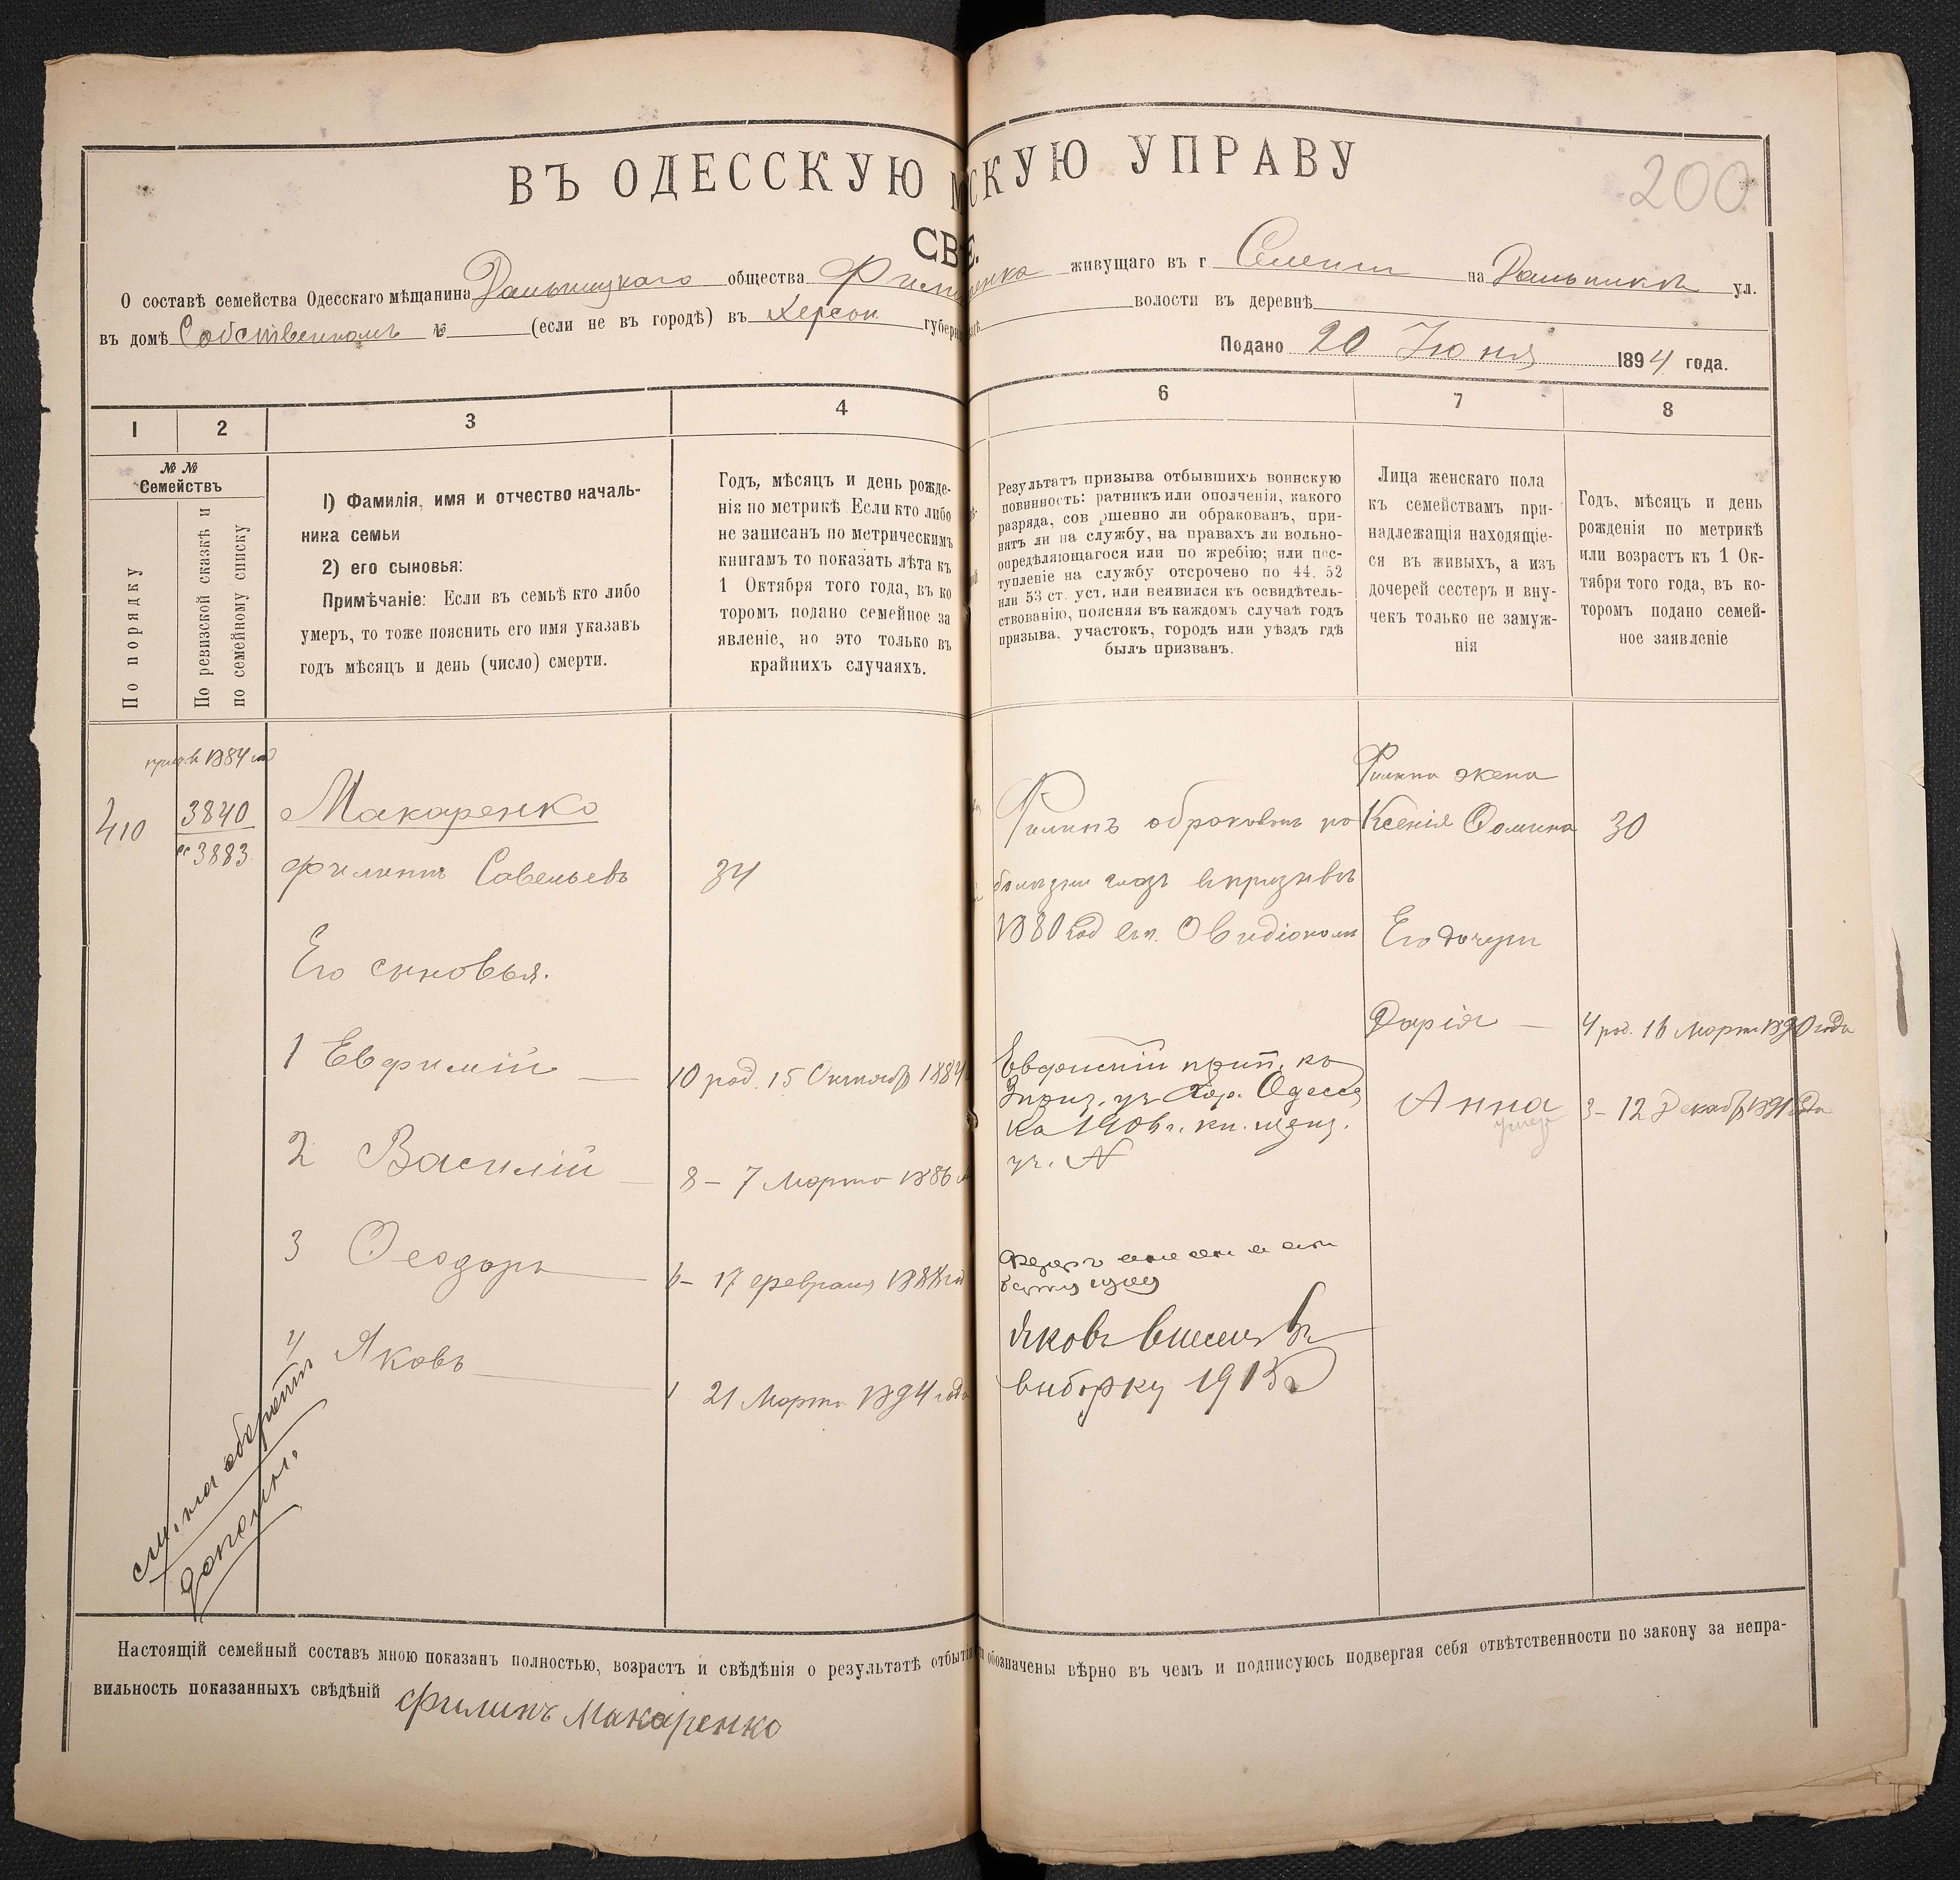 ВЪ ОДЕССКУЮ М СКУЮ УПРАВУ
200
СВѢ
О составѣ семейства Одесскаго мѣщанина Дальницкаго общества живущаго въ г Селении на Дальникъ ул.
въ домѣ Собственномъ № (если не въ городѣ) въ Херсон губерн волости въ деревнѣ
Подано 20 Июня 1894 года.
1 2 3 4 6 7 8
№ №
Семействъ
По порядку
По ревизской сказкѣ и
по семейному списку
1) Фамилія, имя и отчество началь-
ника семьи
2) его сыновья:
Примѣчаніе: Если въ семьѣ кто либо
умеръ, то тоже пояснить его имя указавъ
годъ мѣсяцъ и день (число) смерти.
Годъ, мѣсяцъ и день рожде-
нія по метрикѣ Если кто либо
не записанъ по метрическимъ
книгамъ то показать лѣта къ
1 Октября того года, въ ко
торомъ подано семейное за
явленіе, но это только въ
крайнихъ случаяхъ.
Результатъ призыва отбывшихъ воинскую
повинность: ратникъ или ополченія, какого
разряда, сов ршенно ли обракованъ, при-
нятъ ли на службу, на правахъ ли вольно-
опредѣляющагося или по жребію; или пос-
тупленіе на службу отсрочено по 44. 52
или 53 ст. уст. или неявился къ освидѣтель-
ствованію, поясняя въ каждомъ случаѣ годъ
призыва, участокъ, городъ или уѣздъ гдѣ
былъ призванъ.
Лица женскаго пола
къ семействамъ при-
надлежащія находящіе-
ся въ живыхъ, а изъ
дочерей сестеръ и вну-
чекъ только не замуж-
нія
Годъ, мѣсяцъ и день
рожденія по метрикѣ
или возрастъ къ 1 Ок-
тября того года, въ ко-
торомъ подано семей-
ное заявленіе
1884
410
3840
3883
Макаренко
Филиппъ Савельевъ 34
Его сыновья.
1 Евфимій 10 род. 15 Октябр 1884
2 Василій 8 – 7 Марта 1886
3 Феодоръ 6 – 17 февраля 1888 год
4 Яковъ 1 21 Марта 1894 года
Филипъ обракованъ по
болезни глазъ в призивъ
1880 год Овидіополь
Евфимій прип. ко
3 приз. уч. Одесс
ка 1906 г.
уч. N
Яковъ внесенъ въ
выборку 1915
Филипа жена
Ксенія Фомина 30
Его дочери
Дарія – 4 род. 16 Марта 1890 года
Анна 3 – 12 Декабр 1891 года
умер
Настоящій семейный составъ мною показанъ полностью, возрастъ и свѣдѣнія о результатѣ отбытія обозначены вѣрно въ чемъ и подписуюсь подвергая себя отвѣтственности по закону за непра-
вильность показанныхъ свѣдѣній Филипъ Макаренко